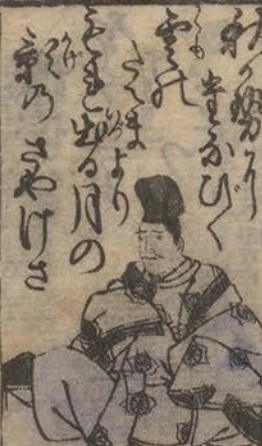 秋かぜに
たなびく
雲の
たえまより
もれ出る月の
景の さやけさ